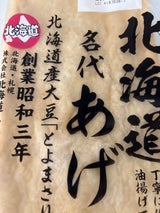 北海道
名代
あげ
丁寧に
油揚げ
北海道
北海道産大豆「とよまさり
創業昭和三年
北海道 札幌
株式会社